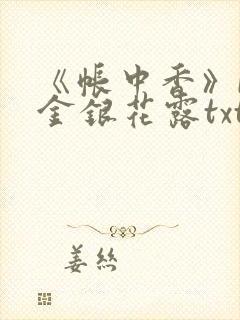 《帐中香》
金银花露txt
姜丝